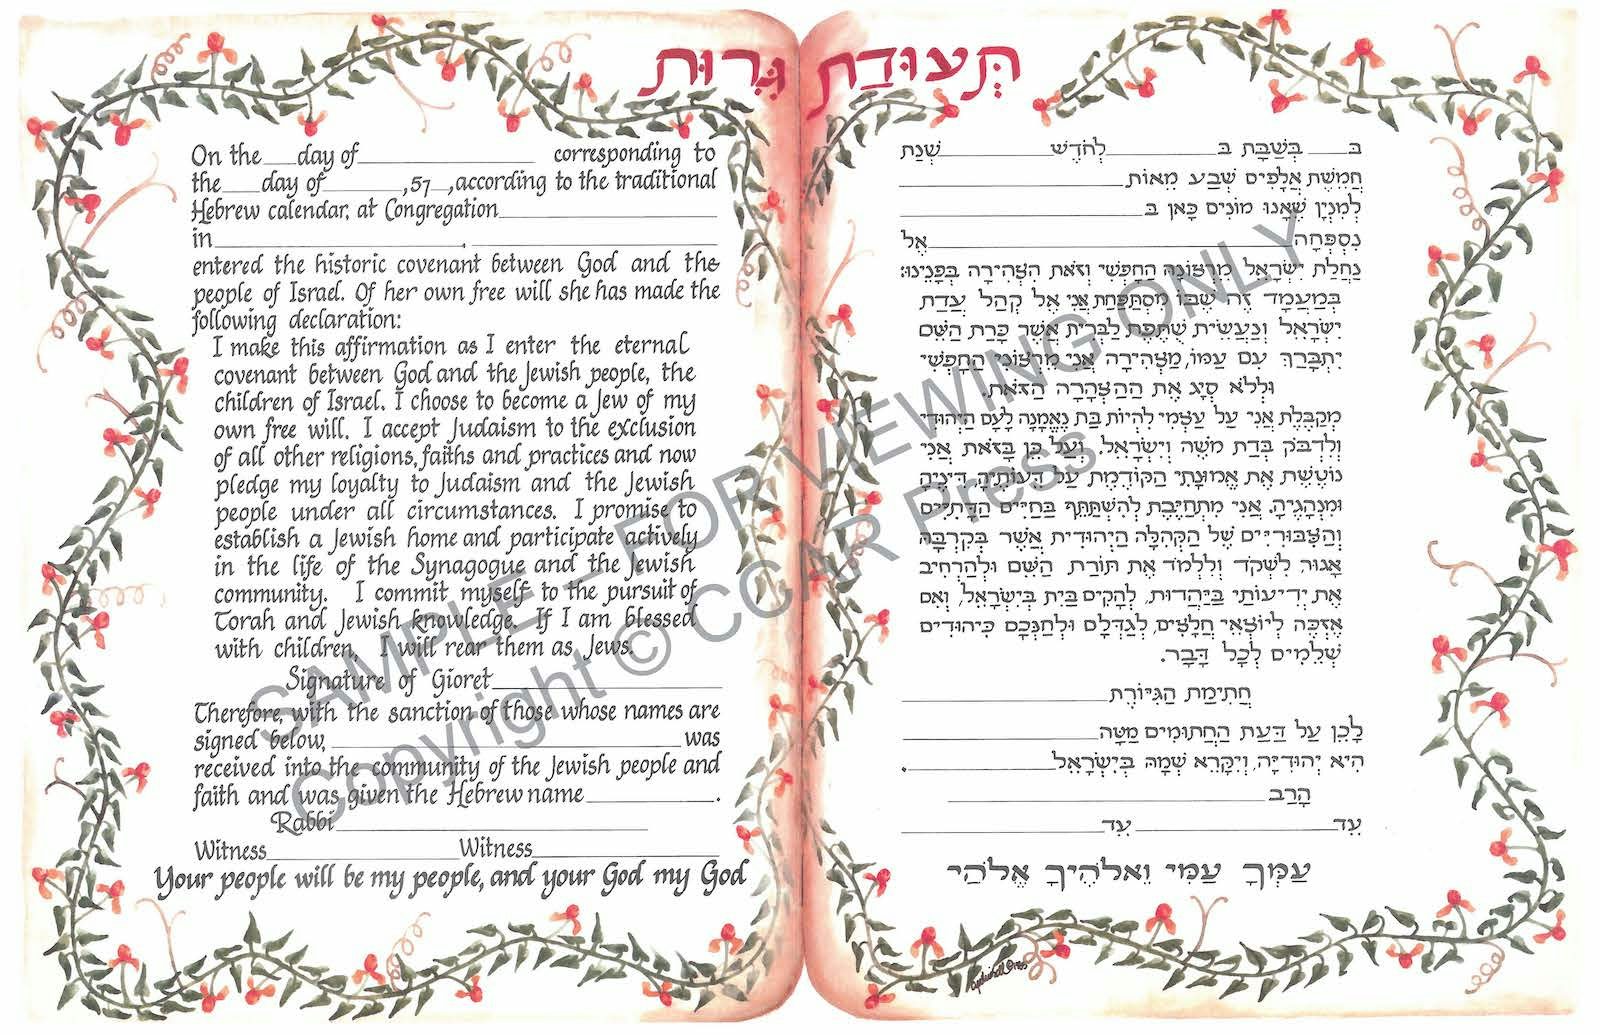 תְּעוּדַת גֵּרוּת
On the ___ day of ___ corresponding to
the ___ day of ___, 57__, according to the traditional
Hebrew calendar, at Congregation ___
in ___, ___
entered the historic covenant between God and the
people of Israel. Of her own free will she has made the
following declaration:
I make this affirmation as I enter the eternal
covenant between God and the Jewish people, the
children of Israel. I choose to become a Jew of my
own free will. I accept Judaism to the exclusion
of all other religions, faiths and practices and now
pledge my loyalty to Judaism and the Jewish
people under all circumstances. I promise to
establish a Jewish home and participate actively
in the life of the Synagogue and the Jewish
community. I commit myself to the pursuit of
Torah and Jewish knowledge. If I am blessed
with children, I will rear them as Jews.
Signature of Gioret ___
Therefore, with the sanction of those whose names are
signed below, ___ was
received into the community of the Jewish people and
faith and was given the Hebrew name ___.
Rabbi ___
Witness ___ Witness ___
Your people will be my people, and your God my God
בּ___ בְּשַׁבָּת בּ___ לְחֹדֶשׁ ___ שְׁנַת
חֲמֵשֶׁת אֲלָפִים שְׁבַע מֵאוֹת ___
לְמִנְיָן שֶׁאָנוּ מוֹנִים כָּאן בּ ___
נִסְפְּחָה ___ אֶל
נַחֲלַת יִשְׂרָאֵל מֵרְצוֹנָהּ הַחָפְשִׁי וְזֹאת הִצְהִירָה בְּפָנֵינוּ:
בְּמַעֲמָד זֶה שֶׁבּוֹ מִסְתַּפַּחַת אֲנִי אֶל קְהַל עֲדַת
יִשְׂרָאֵל וְנַעֲשֵׂית שֻׁתֶּפֶת לַבְּרִית אֲשֶׁר כָּרַת הַשֵּׁם
יִתְבָּרַךְ עִם עַמּוֹ, מַצְהִירָה אֲנִי מֵרְצוֹנִי הַחָפְשִׁי
וּלְלֹא סְיָג אֶת הַהַצְהָרָה הַזֹּאת.
מְקַבֶּלֶת אֲנִי עַל עַצְמִי לִהְיוֹת בַּת נֶאֱמָנָה לָעָם הַיְהוּדִי
וְלִדְבֹּק בְּדַת מֹשֶׁה וְיִשְׂרָאֵל, וְעַל כֵּן בָּזֹאת אֲנִי
נוֹטֶשֶׁת אֶת אֱמוּנָתִי הַקּוֹדֶמֶת עַל דֵּעוֹתֶיהָ, דִּינֶיהָ
וּמִנְהָגֶיהָ. אֲנִי מִתְחַיֶּבֶת לְהִשְׁתַּתֵּף בַּחַיִּים הַדָּתִיִּים
וְהַצִּבּוּרִיִּים שֶׁל הַקְּהִלָּה הַיְּהוּדִית אֲשֶׁר בְּקִרְבָּהּ
אָגוּר לִשְׁקֹד וְלִלְמֹד אֶת תּוֹרַת הַשֵּׁם וּלְהַרְחִיב
אֶת יְדִיעוֹתַי בַּיַּהֲדוּת, לְהָקִים בַּיִת בְּיִשְׂרָאֵל, וְאִם
אֶזְכֶּה לְיוֹצְאֵי חֲלָצַיִם, לְגַדְּלָם וּלְחַנְּכָם כִּיהוּדִים
שְׁלֵמִים לְכָל דָּבָר.
חֲתִימַת הַגִּיּוֹרֶת ___
לָכֵן עַל דַּעַת הַחֲתוּמִים מַטָּה ___
הִיא יְהוּדִיָּה, וְיִקָּרֵא שְׁמָהּ בְּיִשְׂרָאֵל ___.
הָרַב ___
עֵד ___ עֵד ___
עַמֵּךְ עַמִּי וֵאלֹהַיִךְ אֱלֹהָי
SAMPLE – FOR VIEWING ONLY
Copyright © CCAR Press